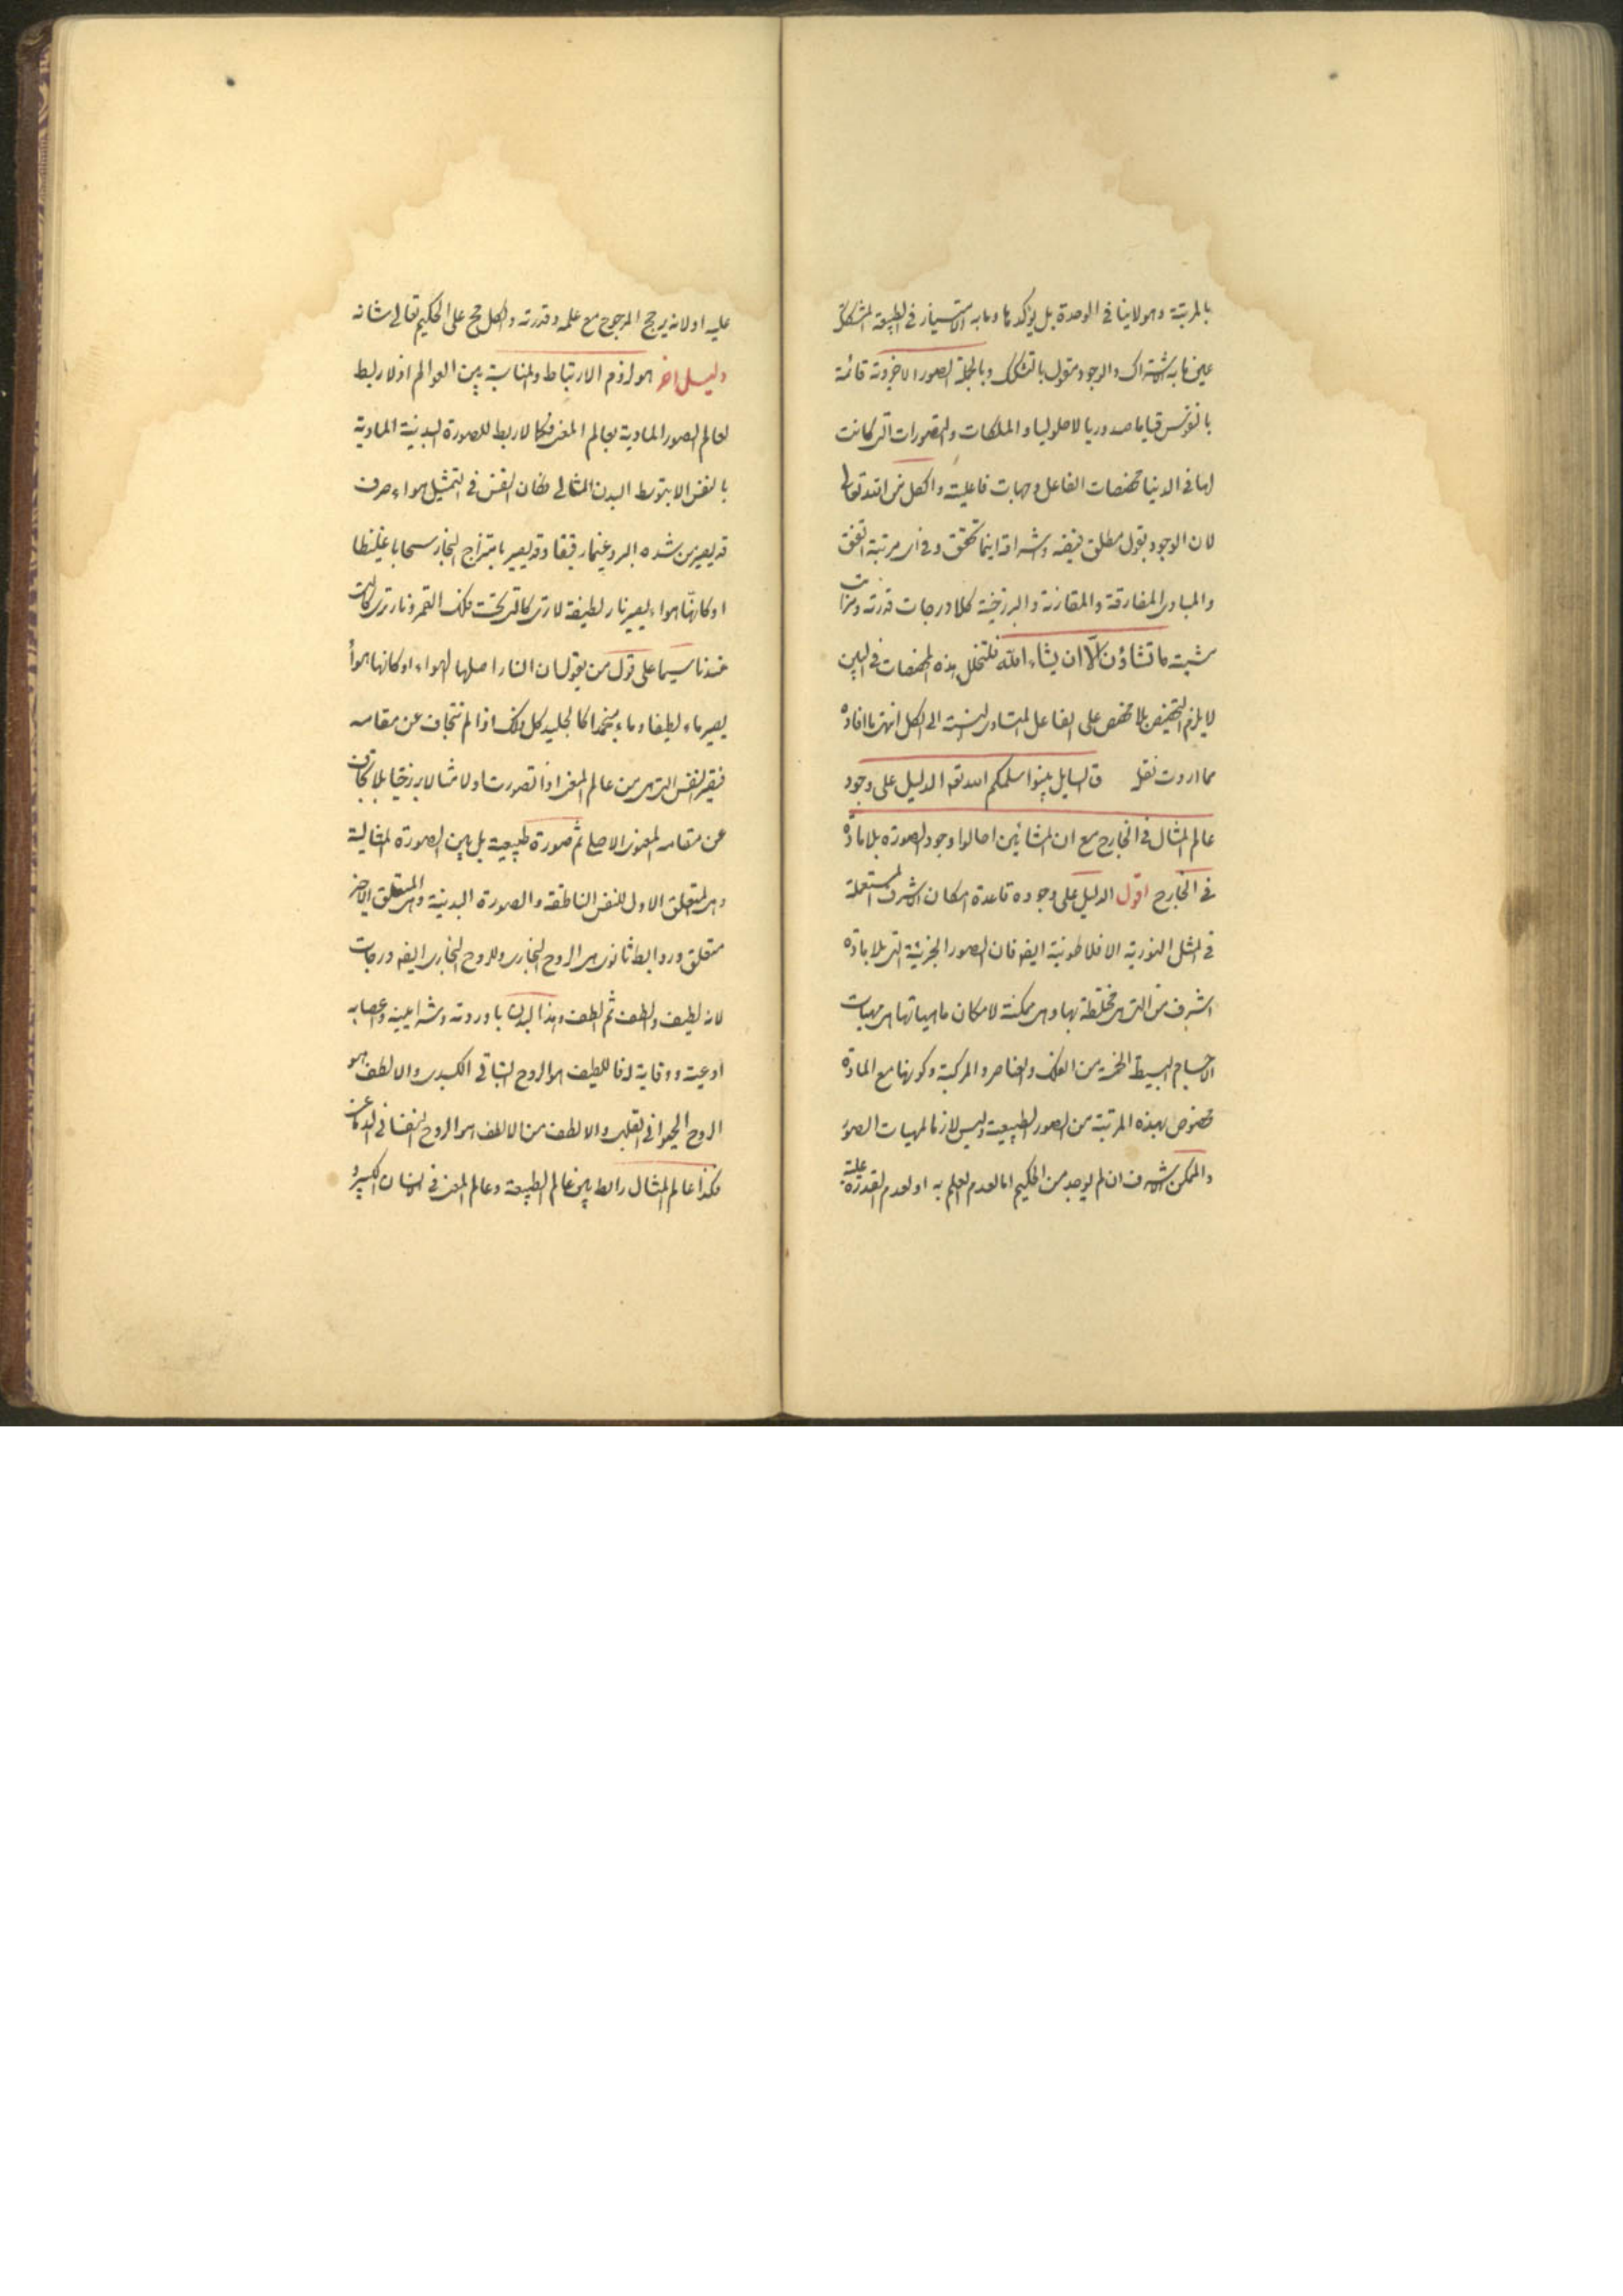 بالمرتبة وهو لاينافى الوحدة بل يؤكدها ومابه الامتياز فى الطبيعة المشككة
عين مابه الاشتراك والوجود مقول بالتشكيك وبالجملة الصور الاخروية قائمة
بالنفوس قياما صدوريا لاحلوليا والملكات والتصورات التى كانت
لها فى الدنيا مخصصات الفاعل وجهات فاعليته والكل من الله تعالى
لان الوجود بقول مطلق فيضه واشراقه اينما تحقق وفى اى مرتبة اتفق
والمبادى المفارقة والمقارنة والبرزخية كلا درجات قدرته ومنازل
مشيته ماتشاؤن الّا ان يشاء الله فلتخلل هذه المخصصات فى البين
لايلزم التخصيص بلا مخصص على الفاعل المتساوى النسبة الى الكل انتهى ماافاده
مما اردت نقله ق السايل بينوا سلمكم الله تعه الدليل على وجود
عالم المثال فى الخارج مع ان المشائين احالوا وجود الصورة بلا مادّة
فى الخارج اقول الدليل على وجوده قاعدة امكان الاشرف المستعملة
فى المثل النورية الافلاطونية ايضه فان الصور الجزئية التى بلا مادّة
اشرف من التى هى مختلطة بها وهى ممكنة لامكان ماهياتها اى مهيات
الاجسام البسيطة الخمسة من الفلك والعناصر والمركبة وكونها مع المادّة
مخصوص بهذه المرتبة من الصور الطبيعية وليس لازما لمهيات الصور
والممكن الاشرف ان لم يوجد من الحكيم اما لعدم العلم به او لعدم القدرة
عليه او لانه يرجح المرجوح مع علمه وقدرته والكل مح على الحكيم تعالى شانه
دليل اخر هو لزوم الارتباط والمناسبة بين العوالم اذ لا ربط
لعالم الصور المادية بعالم المعنى فكما لاربط للصورة البدنية المادية
بالنفس الا بتوسط البدن المثالى فكان النفس فى التمثيل هواء صرف
قد يصير من شده البرد غيما رقيقا وقد يصير بامتزاج البخار سحابا غليظا
او كانها هواء يصير نار لطيفة لاترى كالتى تحت فلك القمر ونار ترى كالتى
عندنا سيما على قول من يقول ان النار اصلها الهواء او كانها هواء
يصير ماء لطيفا وماء منجمدا كالجليد كل ذلك اذا لم تتجاف عن مقامه
فيصير النفس التى هى من عالم المعنى اذا تصورت اولا مثالا برزخيا بلا تجاف
عن مقامه المعنوى الاصلى ثم صورة طبيعية بل بين الصورة المثالية
وهى المتعلق الاول للنفس الناطقة والصورة البدنية وهى المتعلق الاخر
متعلق وروابط ثانوى هى الروح البخارى وللروح البخارى ايضه درجات
لانه لطيف والطف ثم الطف وهذا البدن باوردته وشرايينه واعصابه
اوعيته ووقاية له فاللطيف هو الروح النباتى الكبدى والالطف هو
الروح الحيوانى القلبى والالطف من الالطف هو الروح النفسانى الدماغى
فكذا عالم المثال رابط بين عالم الطبيعة وعالم المعنى فى الانسان الكبير و